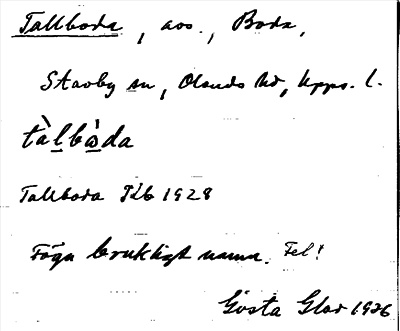 Tallboda, avs., Boda,
Stavby sn, Olands hd, Upps. l.
tàlbòda
Tallboda Jdb 1928
Föga brukligt namn. Fel!
Gösta Glad 1926